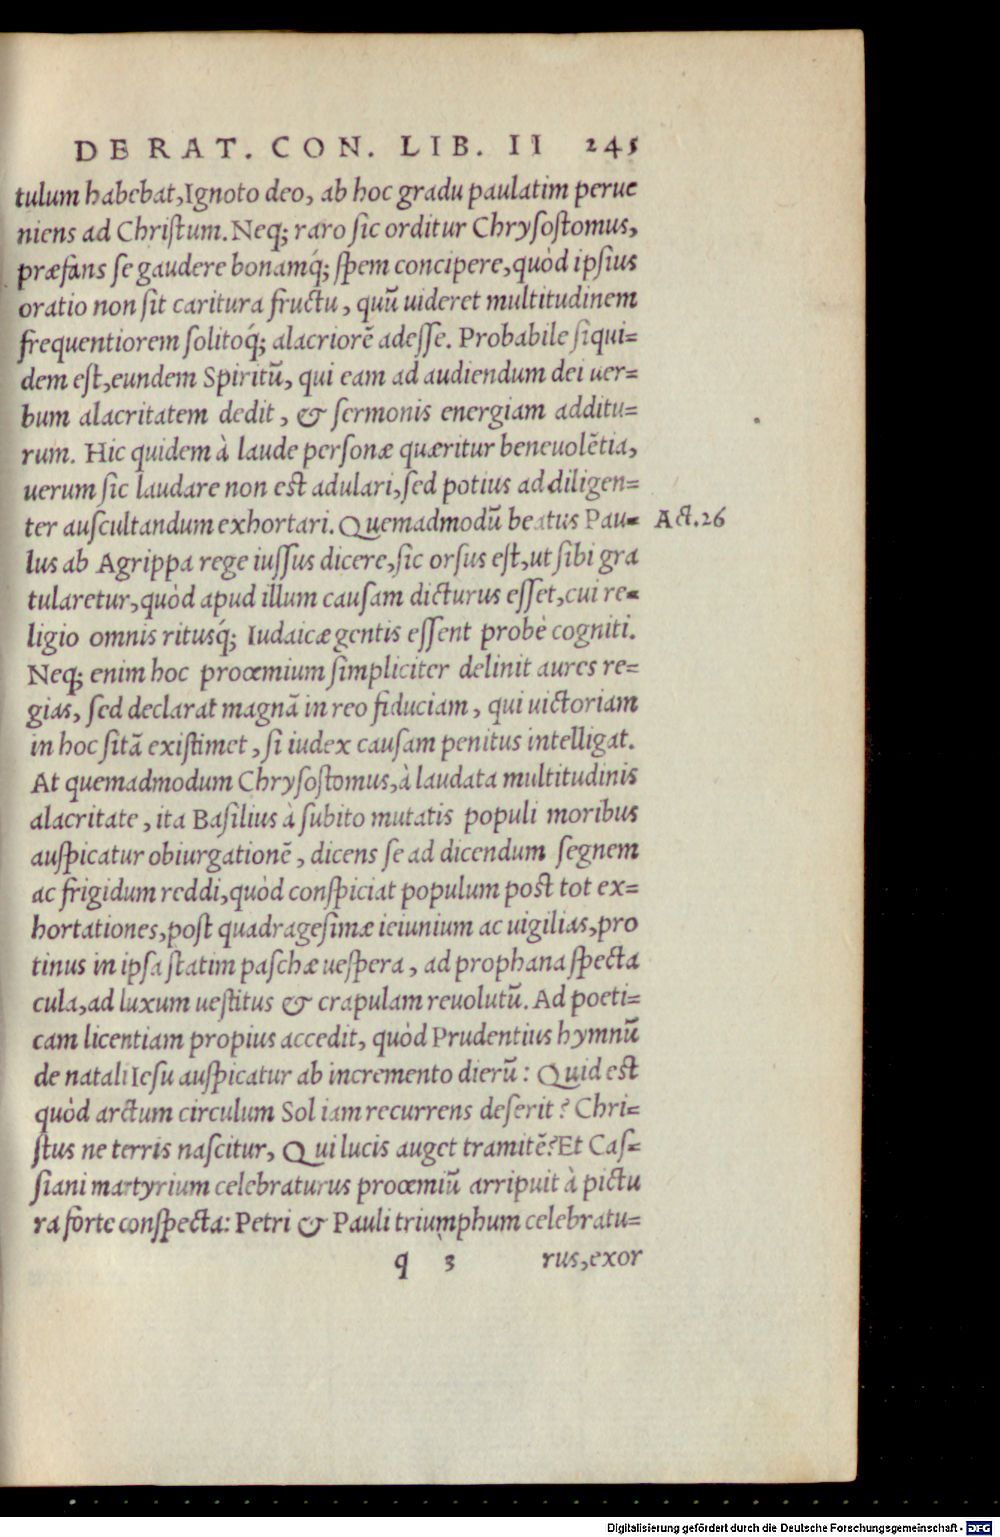 DE RAT. CON. LIB. II 245
tulum habebat,Ignoto deo, ab hoc gradu paulatim perue
niens ad Chriſtum. Neq; raro ſic orditur Chryſoſtomus,
præfans ſe gaudere bonamq́; ſpem concipere,quòd ipſius
oratio non ſit caritura fructu, quū uideret multitudinem
frequentiorem ſolitoq́; alacriorē adeſſe. Probabile ſiqui=
dem eſt,eundem Spiritū, qui eam ad audiendum dei uer=
bum alacritatem dedit, & ſermonis energiam additu=
rum. Hic quidem à laude perſonæ quæritur beneuolētia,
uerum ſic laudare non eſt adulari,ſed potius ad diligen=
ter auſcultandum exhortari. Quemadmodū beatus Pau= Act.26
lus ab Agrippa rege iuſſus dicere,ſic orſus eſt,ut ſibi gra
tularetur,quòd apud illum cauſam dicturus eſſet,cui re=
ligio omnis ritusq́; Iudaicæ gentis eſſent probè cogniti.
Neq; enim hoc proœmium ſimpliciter delinit aures re=
gias, ſed declarat magnā in reo fiduciam, qui uictoriam
in hoc ſitā exiſtimet, ſi iudex cauſam penitus intelligat.
At quemadmodum Chryſoſtomus,à laudata multitudinis
alacritate, ita Baſilius à ſubito mutatis populi moribus
auſpicatur obiurgationē, dicens ſe ad dicendum ſegnem
ac frigidum reddi,quòd conſpiciat populum poſt tot ex=
hortationes,poſt quadrageſimæ ieiunium ac uigilias,pro
tinus in ipſa ſtatim paſchæ ueſpera, ad prophana ſpecta
cula,ad luxum ueſtitus & crapulam reuolutū. Ad poeti=
cam licentiam propius accedit, quòd Prudentius hymnū
de natali Ieſu auſpicatur ab incremento dierū: Quid eſt
quòd arctum circulum Sol iam recurrens deſerit? Chri=
ſtus ne terris naſcitur, Qui lucis auget tramitē? Et Caſ=
ſiani martyrium celebraturus proœmiū arripuit à pictu
ra forte conſpecta: Petri & Pauli triumphum celebratu=
q 3 rus,exor
Digitalisierung gefördert durch die Deutsche Forschungsgemeinschaft - DFG